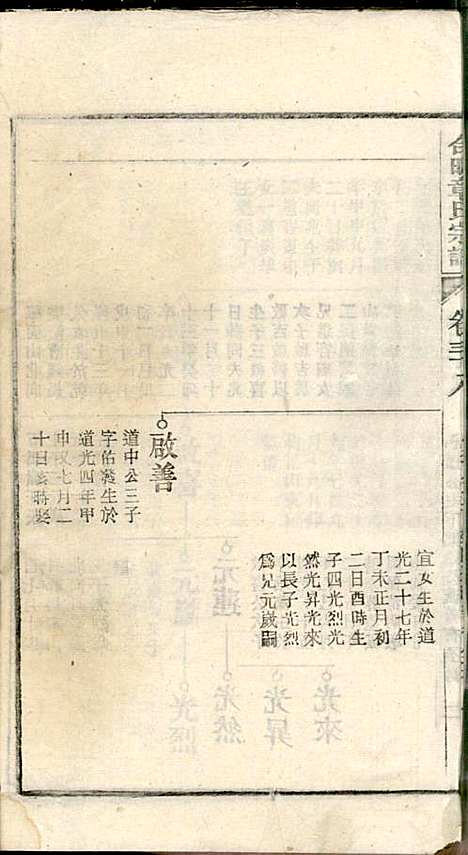 章氏宗譜
卷三十八
宜女生於道
光二十七年
丁未正月初
二日酉時生
子四光烈光
然光昇光來
以長子光烈
為兄元歲嗣
啟善
道中公三子
字佑發生於
道光四年甲
申又七月二
十日亥時娶